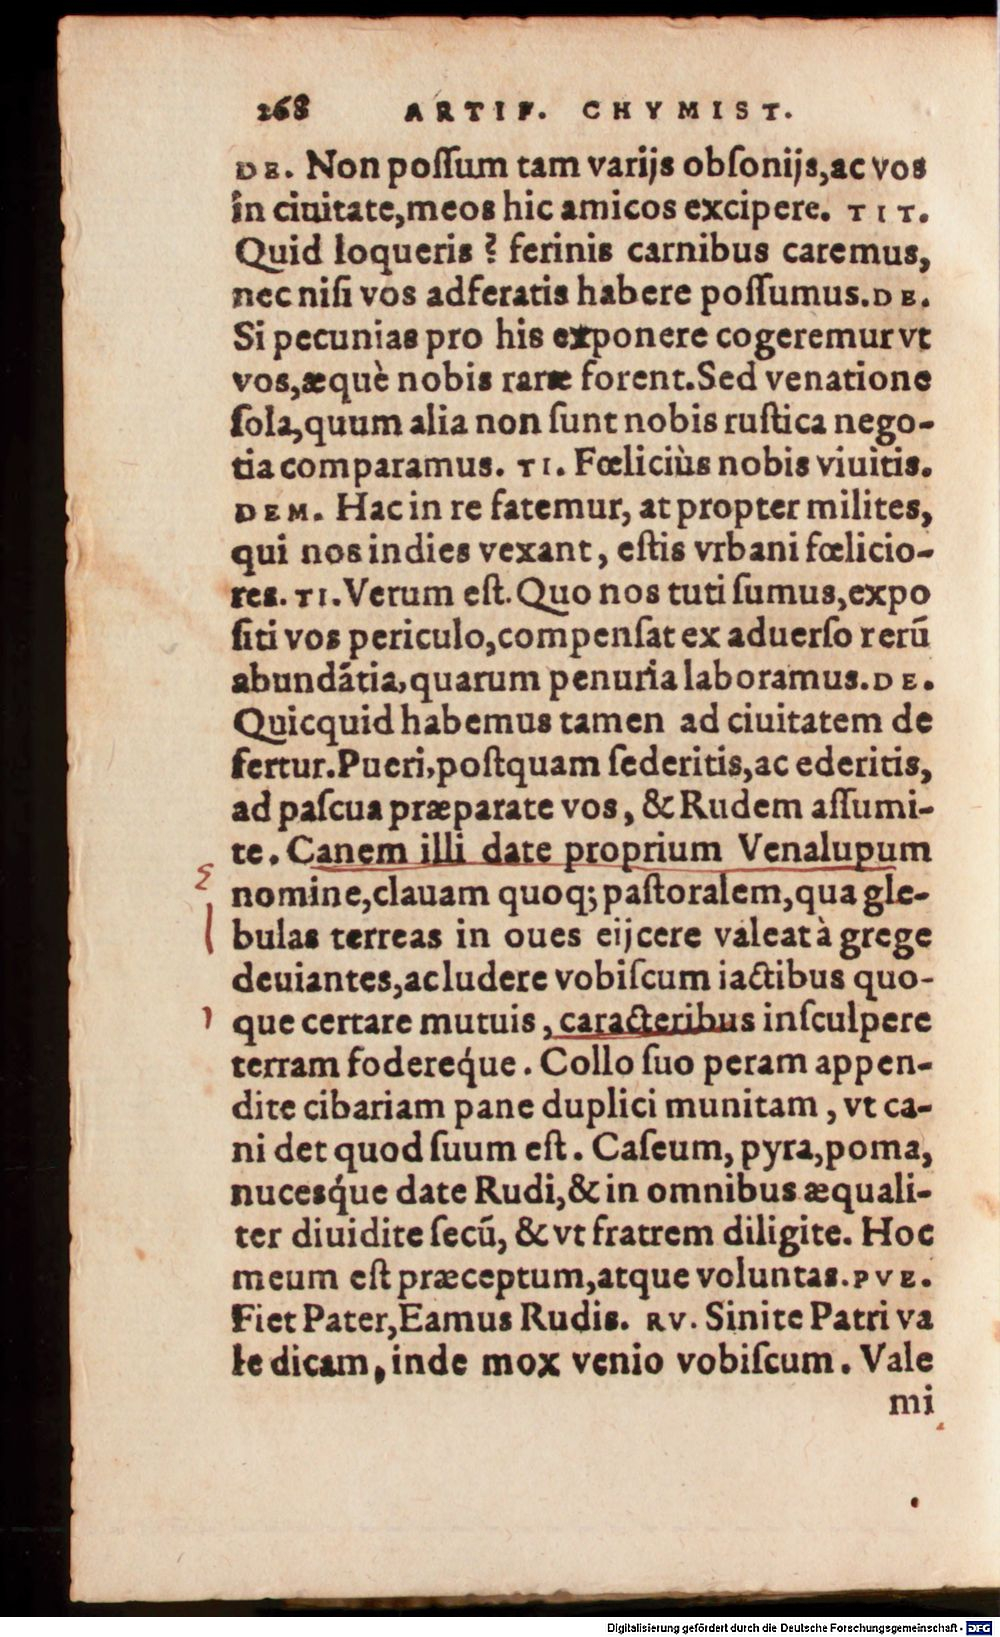 268 ARTIF. CHYMIST.
DE. Non poſſum tam varijs obſonijs,ac vos
in ciuitate,meos hic amicos excipere. TIT.
Quid loqueris ? ferinis carnibus caremus,
nec niſi vos adferatis habere poſſumus.DE.
Si pecunias pro his exponere cogeremur vt
vos,æquè nobis raræ forent.Sed venatione
ſola,quum alia non ſunt nobis ruſtica nego-
tia comparamus. TI. Fœliciùs nobis viuitis.
DEM. Hac in re fatemur, at propter milites,
qui nos indies vexant, eſtis vrbani fœlicio-
res. TI.Verum eſt.Quo nos tuti ſumus,expo
ſiti vos periculo,compenſat ex aduerſo rerũ
abundãtia,quarum penuria laboramus.DE.
Quicquid habemus tamen ad ciuitatem de
fertur.Pueri,poſtquam ſederitis,ac ederitis,
ad paſcua præparate vos, & Rudem aſſumi-
te. Canem illi date proprium Venalupum
nomine,clauam quoq; paſtoralem,qua gle-
bulas terreas in oues eijcere valeat à grege
deuiantes,ac ludere vobiſcum iactibus quo-
que certare mutuis, caracteribus inſculpere
terram fodereqúe. Collo ſuo peram appen-
dite cibariam pane duplici munitam, vt ca-
ni det quod ſuum eſt. Caſeum, pyra,poma,
nucesqúe date Rudi,& in omnibus æquali-
ter diuidite ſecũ, & vt fratrem diligite. Hoc
meum eſt præceptum,atque voluntas.PVE.
Fiet Pater,Eamus Rudis. RV. Sinite Patri va
le dicam, inde mox venio vobiſcum. Vale
mi
Digitalisierung gefördert durch die Deutsche Forschungsgemeinschaft - DFG